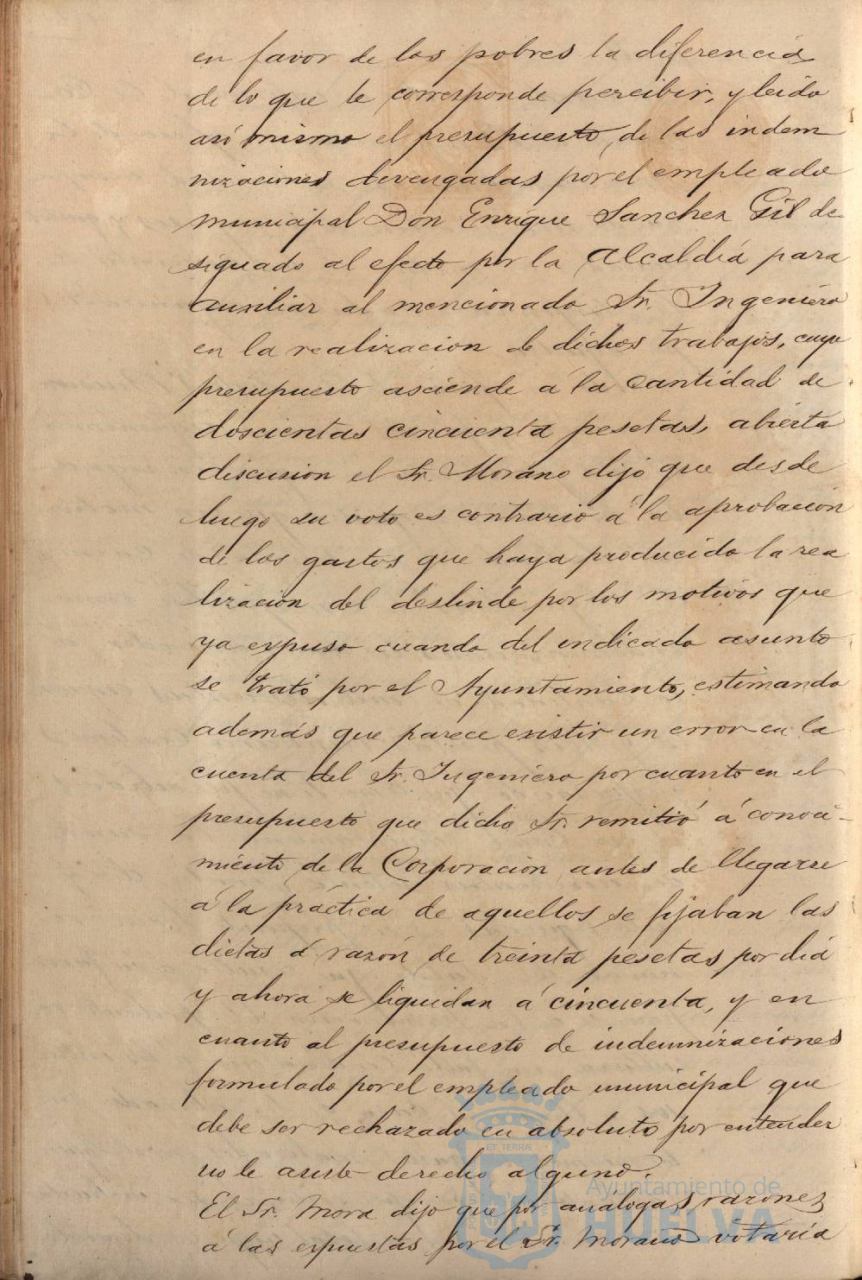 en favor de los pobres la diferencia
de lo que le corresponde percibir, y leido
asi mismo el presupuesto de las indem
nizaciones devengadas por el empleado
municipal Don Enrique Sanchez Gil de
signado al efecto por la Alcaldiá para
auxiliar al mencionado Sr. Ingeniero
en la realizacion de dichos trabajos, cuyo
presupuesto asciende á la cantidad de
doscientas cincuenta pesetas, abierta
discusion el Sr. Morano dijo que desde
luego su voto es contrario á la aprobación
de los gastos que haya producido la rea
lización del deslinde por los motivos que
ya expuso cuando del indicado asunto
se trató por el Ayuntamiento, estimando
además que parece existir un error en la
cuenta del Sr. Ingeniero por cuanto en el
presupuesto que dicho Sr. remitió á conoci-
miento de la Corporacion antes de llegarse
á la práctica de aquellos se fijaban las
dietas á razón de treinta pesetas por diá
y ahora se liquidan á cincuenta, y en
cuanto al presupuesto de indemnizaciones
formulado por el empleado municipal que
debe ser rechazado en absoluto por entender
no le asiste derecho alguno.
El Sr. Mora dijo que por análogas razones
á las expuestas por el Sr. Morano votaria
Ayuntamiento de
HUELVA